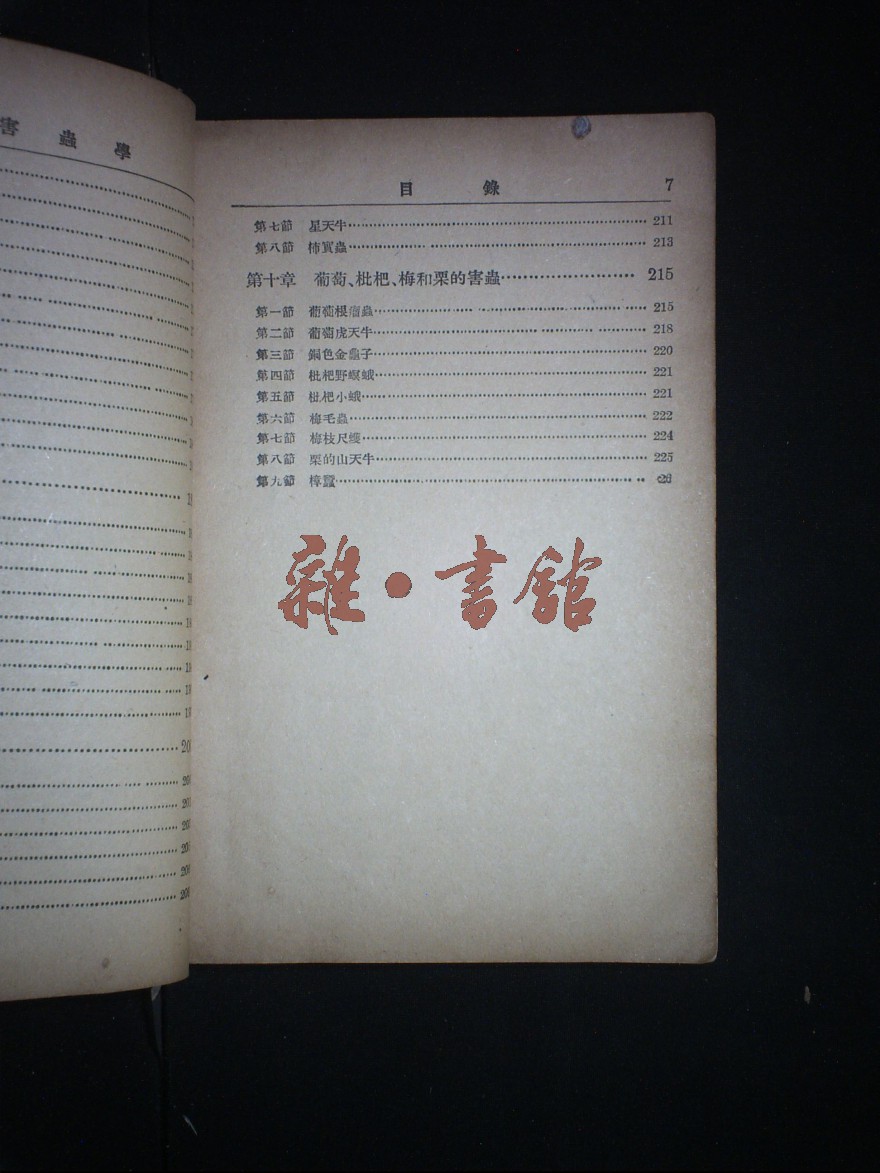 害蟲學
目錄 7
第七節 星天牛 211
第八節 柿實蟲 213
第十章 葡萄、枇杷、梅和栗的害蟲 215
第一節 葡萄根瘤蟲 215
第二節 葡萄虎天牛 218
第三節 銅色金龜子 220
第四節 枇杷野螟蛾 221
第五節 枇杷小蛾 221
第六節 梅毛蟲 222
第七節 梅枝尺蠖 224
第八節 栗的山天牛 225
第九節 樟蠶
雜·書館